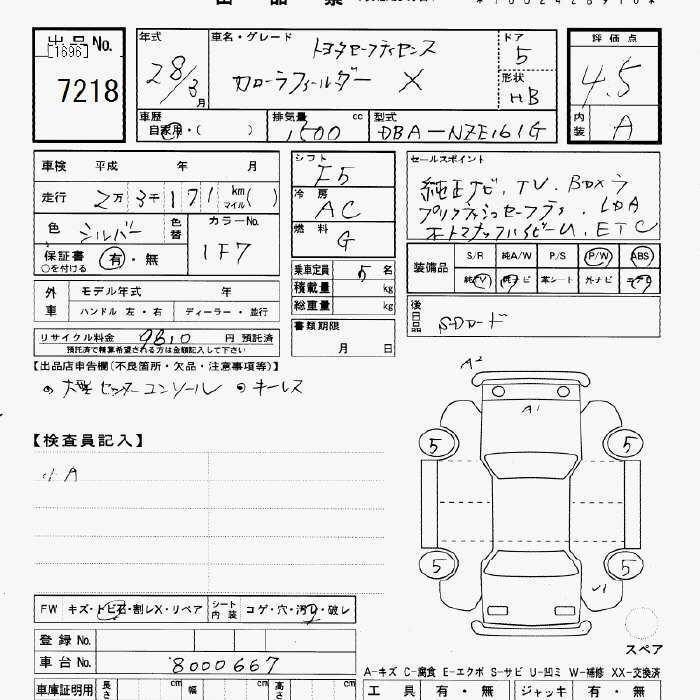 出品No.
[1696]
7218
年式
28/3月
車名・グレード
トヨタセーフティセンス
カローラフィールダー X
ドア
5
形状
HB
評価点
4.5
内装 A
車歴
自家用・( )
排気量 cc
1500
型式
DBA-NZE161G
車検 平成 年 月
走行 2万3千171km(マイル)( )
色 シルバー 色替
カラーNo.
1F7
保証書 有・無
○を付ける
外車 モデル年式 年
ハンドル 左・右 ディーラー・並行
リサイクル料金 9810 円 預託済
預託済で精算希望される方は金額記入して下さい
シフト
F5
冷房
AC
燃料
G
乗車定員 5 名
積載量 kg
総重量 kg
書類期限
月 日
セールスポイント
純正ナビ、TV、BOXラ
プリクラッシュセーフティ、LDA
オートマチックハイビーム、ETC
装備品 S/R 純A/W P/S P/W ABS
純TV 純ナビ 革シート 外ナビ
後日品
SDカード
【出品店申告欄(不良箇所・欠品・注意事項等)】
大型センターコンソール キーレス
【検査員記入】
小A
A2
A1
5
5
5
5
スペア
FW キズ・トビ石・割レX・リペア シート内装 コゲ・穴・汚レ・破レ
登録No.
車台No. 8000667
A-キズ C-腐食 E-エクボ S-サビ U-凹ミ W-補修 XX-交換済
車庫証明用 長さ cm 幅 cm 高さ cm
工具 有・無 ジャッキ 有・無